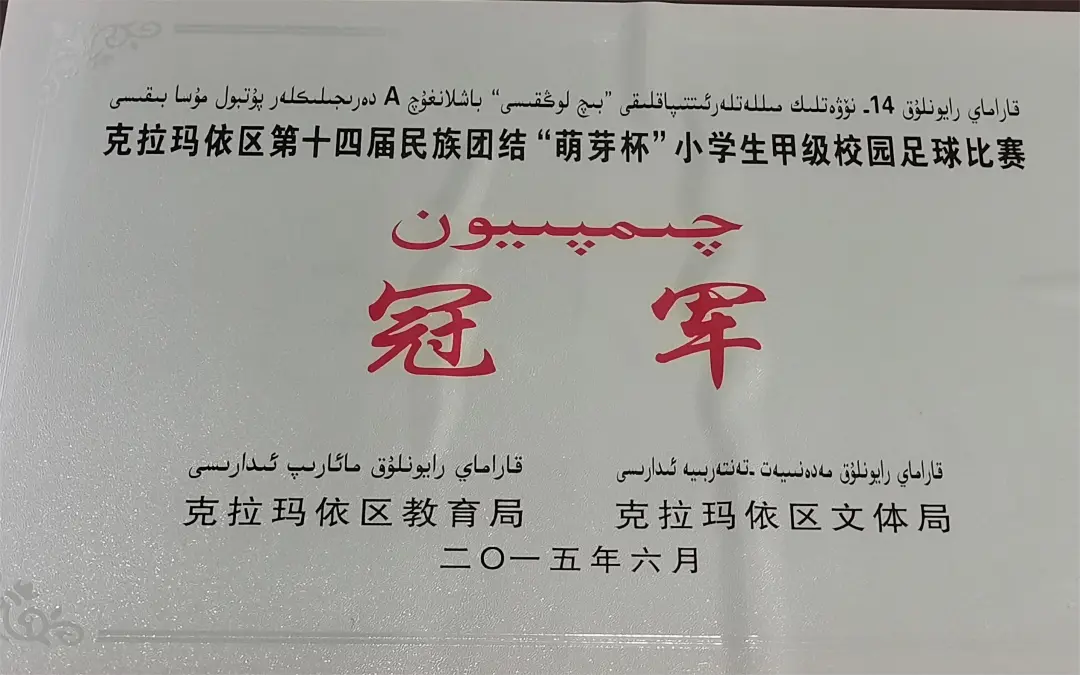 قاراماي رايونلۇق 14ـ نۆۋەتلىك مىللەتلەرئىتتىپاقلىقى “بىچ لوڭقىسى” باشلانغۇچ A دەرىجىلىكلەر پۇتبول مۇسا بىقىسى
克拉玛依区第十四届民族团结“萌芽杯”小学生甲级校园足球比赛
چىمپىيون
冠军
قاراماي رايونلۇق مائارىپ ئىدارىسى
قاراماي رايونلۇق مەدەنىيەت ـتەنتەربىيە ئىدارىسى
克拉玛依区教育局
克拉玛依区文体局
二〇一五年六月